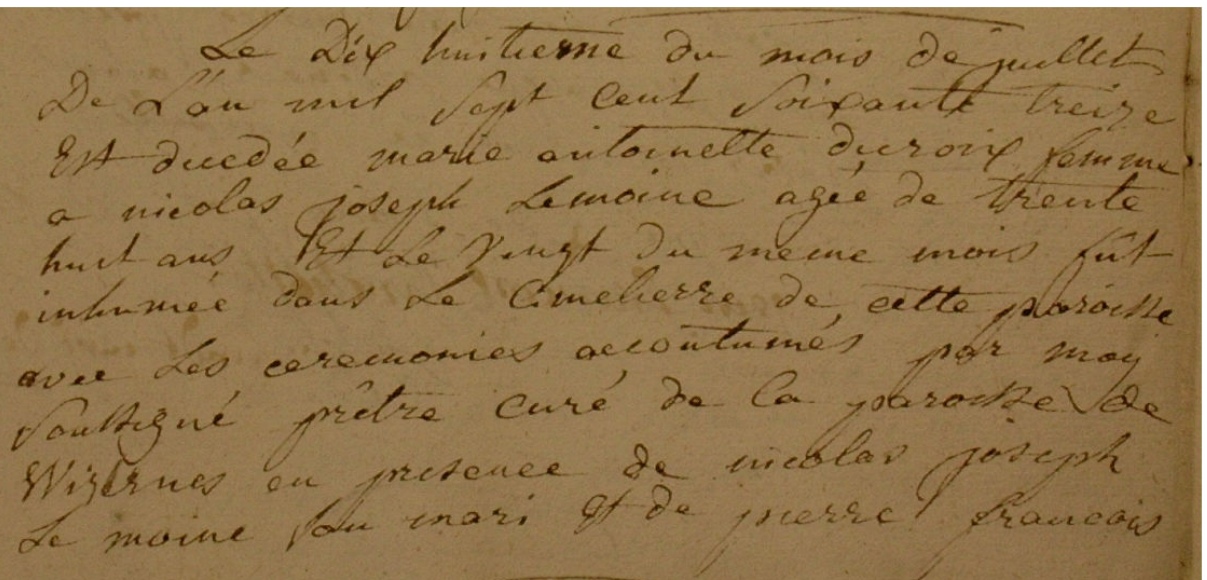 Le Dix huitieme du mois de juillet
De L'an mil sept cent soixante treize
Est decedée marie antoinette Ducroix femme
a nicolas joseph Lemoine agée de trente
huit ans Et Le vingt du meme mois fut
inhumée dans Le Cimetierre de cette paroisse
avec Les ceremonies accoutumés par moy
soussigné prêtre curé de la paroisse de
Wizernes en presence de nicolas joseph
Le moine son mari Et de pierre francois